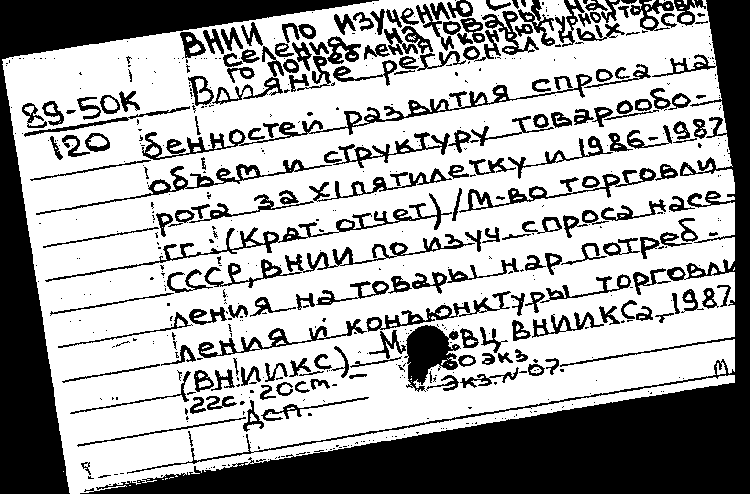 ВНИИ по изучению сп нар
селения на товары
го потребления и конъюктурной торговли
Влияние региональных осо-
89-50К
120
бенностей развития спроса на
объем и структуру товарообо-
рота за XI пятилетку и 1986-1987
гг.: (Крат. отчет) / М-во торговли
СССР, ВНИИ по изуч. спроса насе-
ления на товары нар. потреб-
ления и конъюнктуры торговли
(ВНИИКС). - М. :ВЦ ВНИИКСа, 1987.
22с.; 20см. -
60 экз.
Дсп.
Экз. N 07.
М.